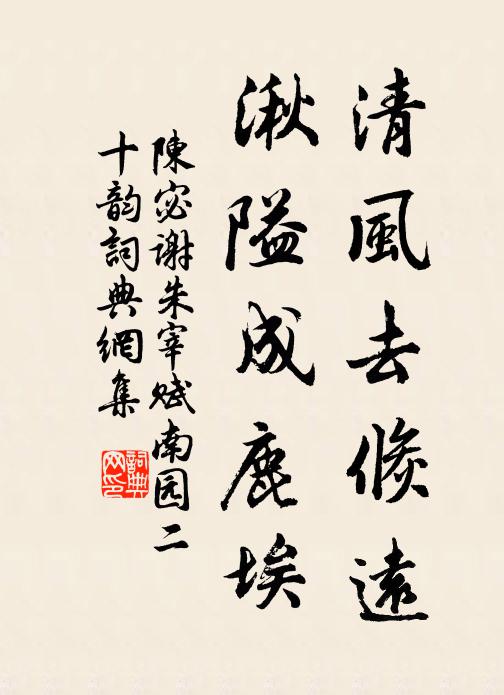 清風去倐遠
湫隘成塵埃
陳宓谢朱宰赋南园二
十韵詞典網集
詞典网印